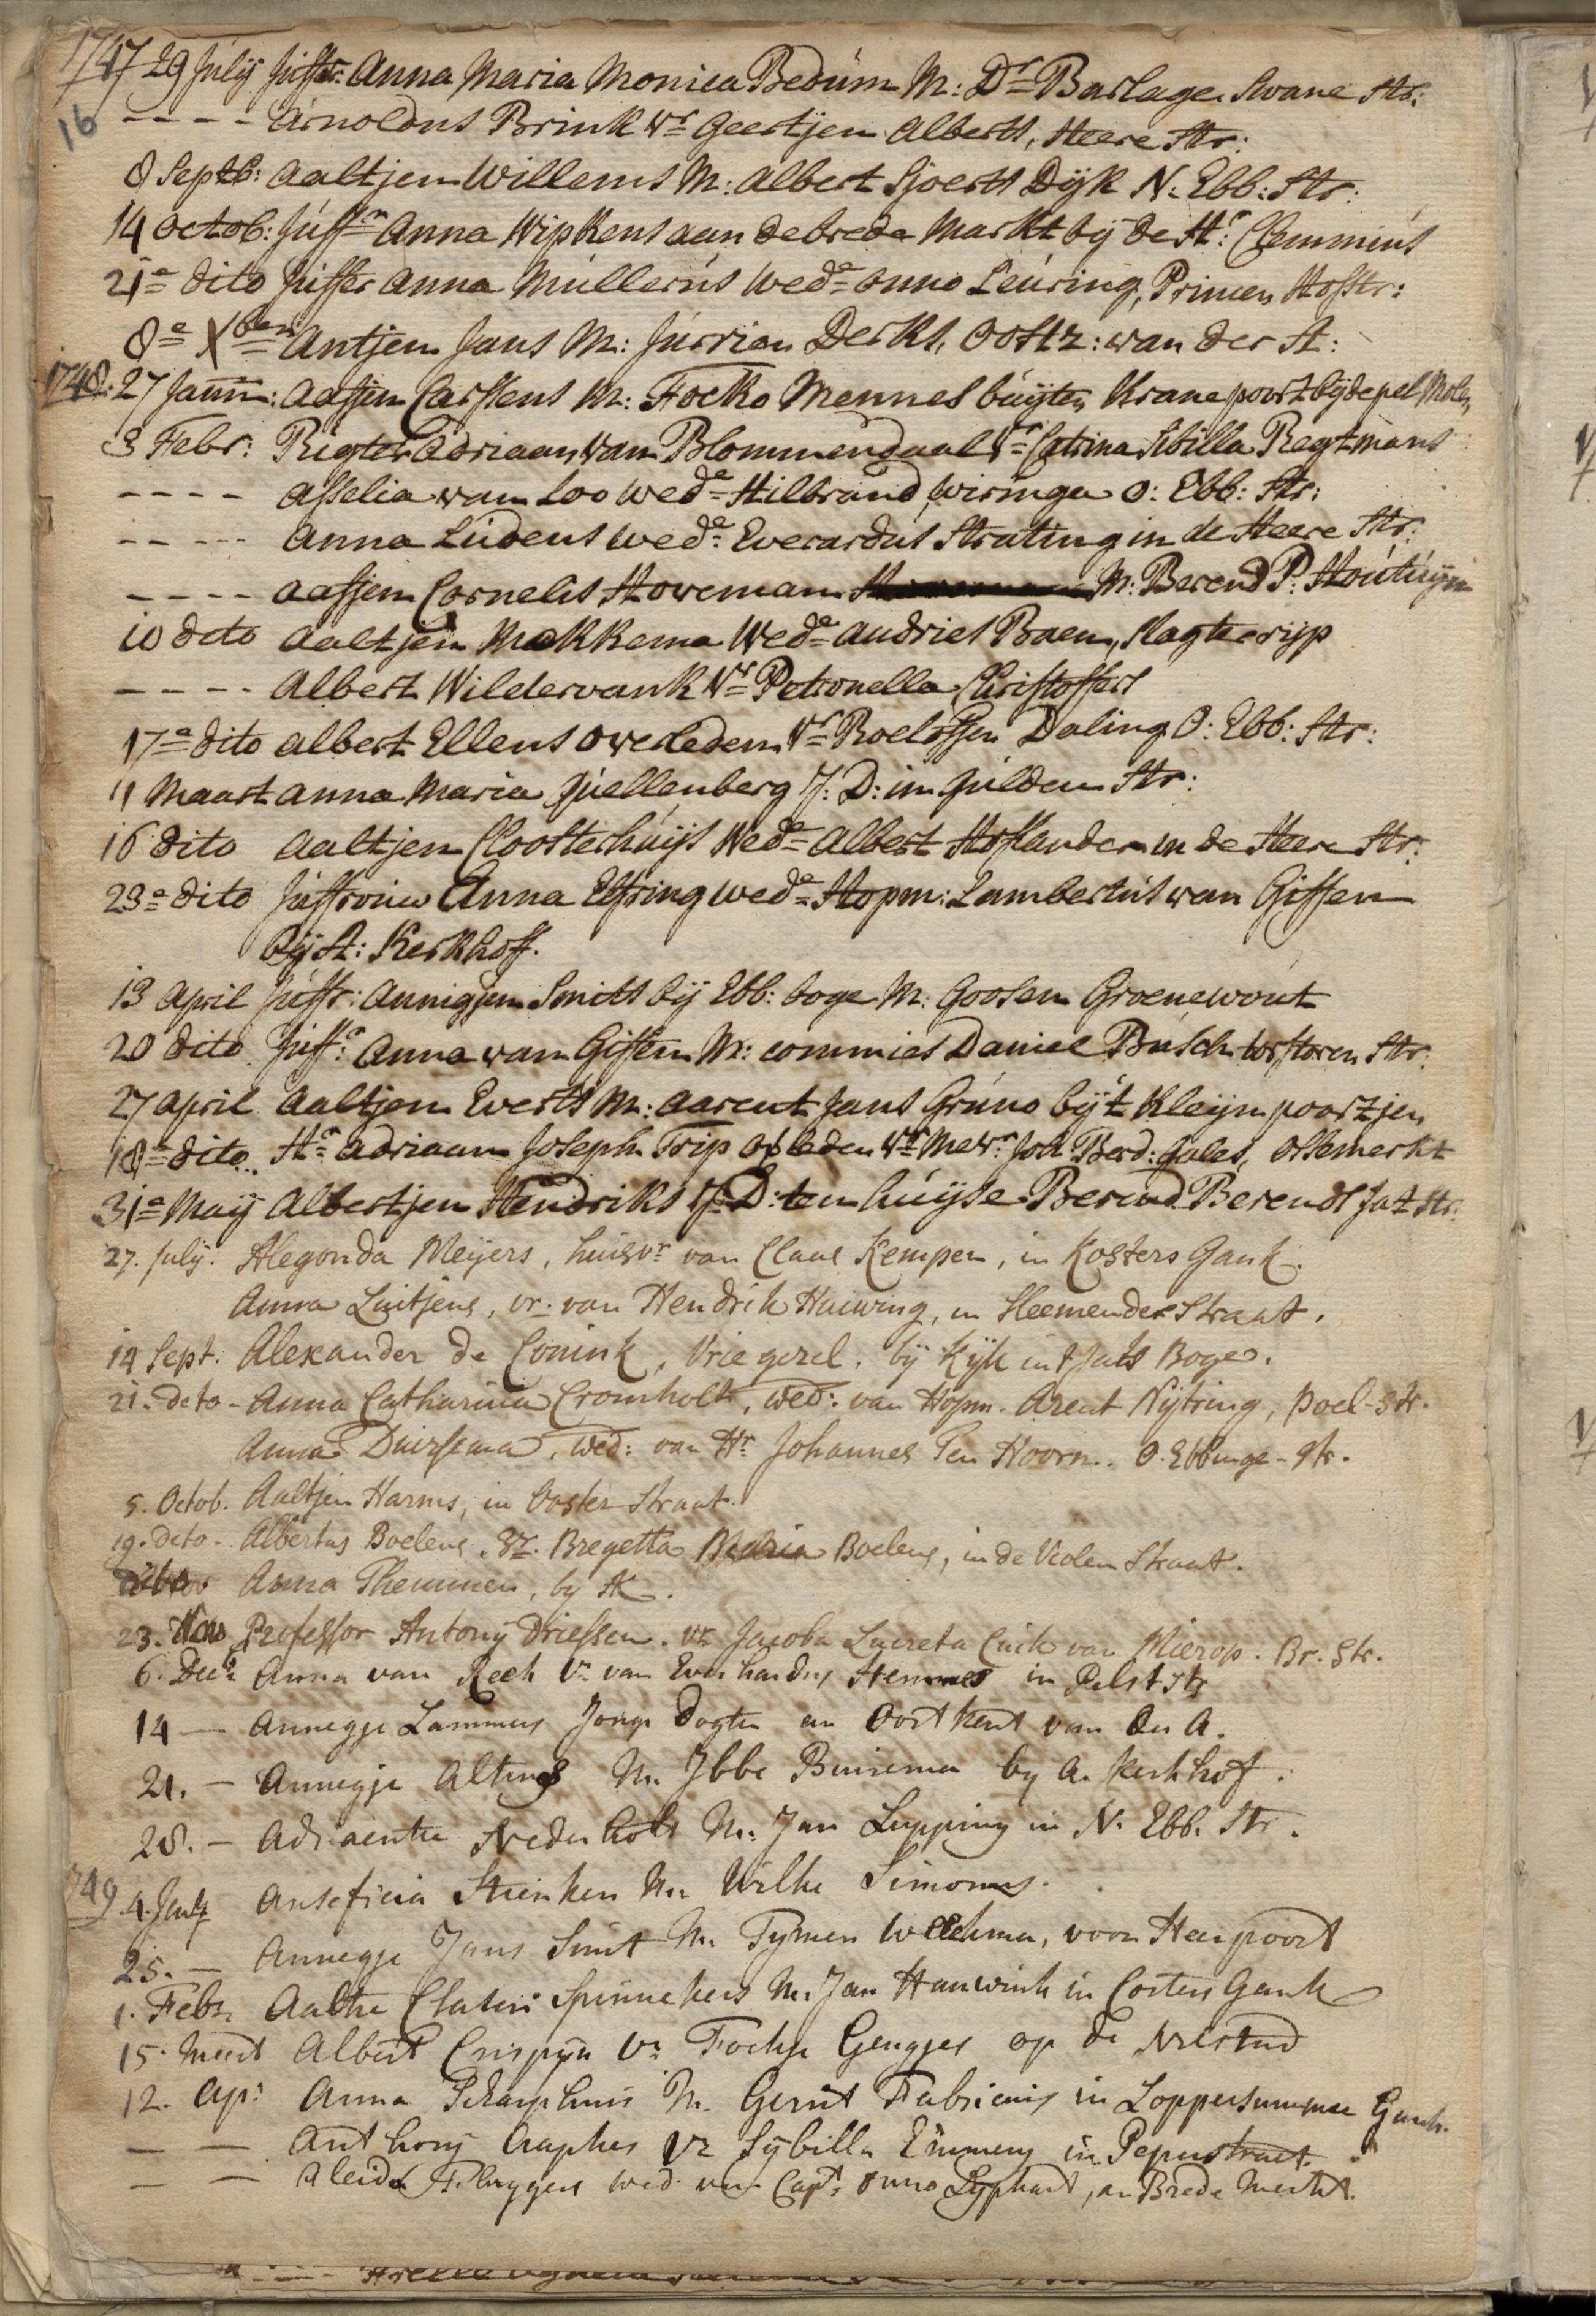 1747 29 Julij Juffr: Anna Maria Monica Bedúm M: Dr Barlage Swane Str:
16 - - - - Arnoldus Brink Vr Geertjen Alberts, Heere Str:
8 Septb: Aaltjen Willems M: Albert Sjoerts Dijk N. Ebb: Str:
14 Octob: Júffr Anna Wipkens aan de brede Markt bij de Hr: Clemmius
21e dito Juffer Anna Mulleriús Wede Onno Leúring, Princen Hofstr:
8e Xber Antjen Jans M: Júrrien Derks, Oostz: van der A:
1748. 27 Janu: Aafjen Carssens M: Focko Mennes búijten Kranepoort bij de pel Molen
3 Febr: Rigter Adriaan van Blommendaal Vr Catrina Sibilla Regtmans
- - - - Asselia van Loo Wede Hilbrand Wiringa O: Ebb: Str:
- - - - Anna Lúdens Wede Everardus Strating in de Heere Str:
- - - - Aafjen Cornelis Hoveman M: Berend P: Houtúijn
10 dito Aaltjen Mekkema Wede Andries Baen, Slagterijp
- - - - Albert Wildervank Vr Petronella Christoffers
17e dito Albert Ellens overleden Vr Roelofjen Daling O: Ebb: Str:
11 Maart Anna Maria Júellenberg J: D: in Gúlden Str:
16 dito Aaltjen Cloosterhúijs Wede Albert Hoflander in de Heere Str:
23e dito Júffrouw Anna Elfring Wede Hopm: Lambertús van Giffen
bij A: Kerkhoff.
13 April Júffr: Annigjen Smits bij Ebb: boge M: Goosen Groenewout
20 dito Juffr: Anna van Giffen M: commies Daniel Búsch torstoren Str:
27 April Aaltjen Everts M: Aarent Jans Grúno bij t Kleijn poortjen
18e dito Hr Adriaan Joseph Trip Vr Mevr: Joh Berd: Gales, Ossemerkt
31e Maij Albertjen Hendriks J: D: ten húijse Berend Berends Jat Str:
27. Julij. Alegonda Meijers, huisvr van Claas Kempen, in Kosters Gank.
Anna Luitjens, vr. van Hendrik Huiwing, in Steemender Straat.
14 Sept. Alexander de Conink, Vriegezel, bij Kijk in t Jats Boge.
21. dito - Anna Catharina Cromholt, wed: van Hopm. Arent Nijtring, Poel-Str.
Anna Duirsema, wed: van Hr Johannes Ten Hoorn. O. Ebbinge-Str.
5. Octob. Aaltjen Harms, in Ooster Straat.
19. dito - Albertus Boelens, Vr. Bregetta Maria Boelens, in de Violen Straat.
dito Anna Themmen, by A.
23. Nov Professor Antonij Driessen. Vr Jacoba Lucreta Cuik van Mierop. Br. Str.
6. Decr Anna van Reeh Vr van Everhardus Hemmes in Pelst Str
14 — Annegje Lammers Jonge Dogter an Oostkant van der A.
21. — Annegje Altings M. Ibbe Buirema by A. Kerkhof.
28. — Adriaentie Nederhols M. Jan Lupping in N. Ebb. Str.
1749 4. Jany Steinken M. Wilke Simons.
25. — Annegje Jans Smit M. Tymen Weekema, voor Heerpoort
1. Febr. Aaltie Clasen Spinnekers M. Jan Hauwink in Costers Gank
15. Meert Albert Crispijn Vr Fockje Geugjes op de Nelstad
12. Apr: Anna Scharphuis M. Gerrit Fabricius in Loppersummer Gank.
— — Anthonij Vr Sybilla Emmeny in Peperstraet.
— Aleida Fluggers wed. van Capt. Onno Lyphart, an Brede Merkt.